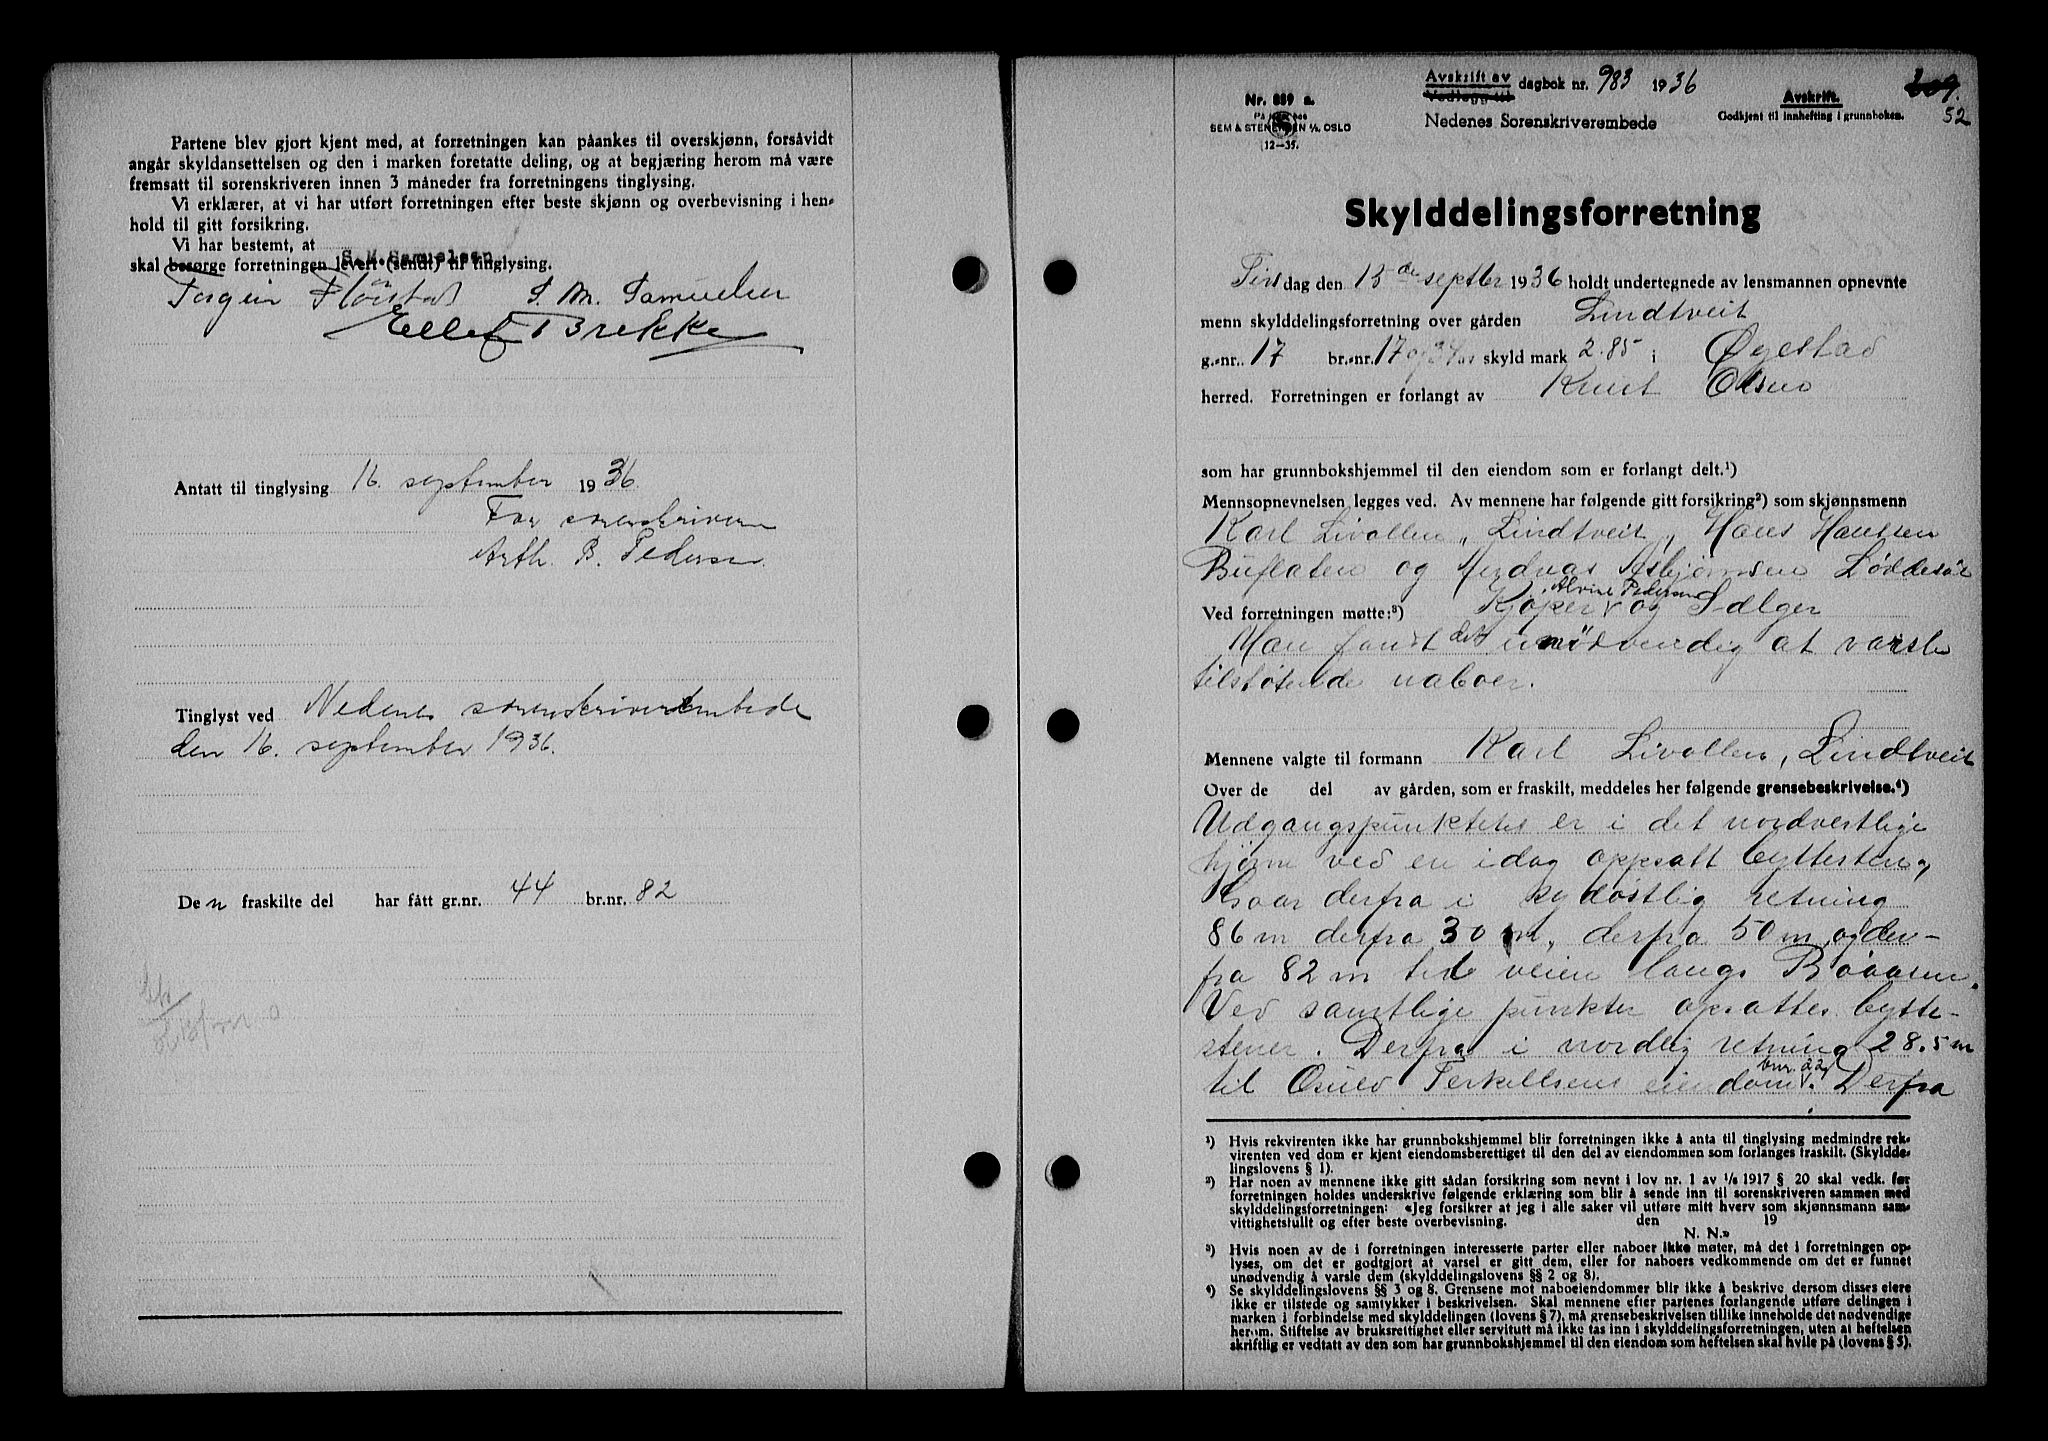 Partene blev gjort kjent med, at forretningen kan påankes til overskjønn, forsåvidt
angår skyldansettelsen og den i marken foretatte deling, og at begjæring herom må være
fremsatt til sorenskriveren innen 3 måneder fra forretningens tinglysing.
Vi erklærer, at vi har utført forretningen efter beste skjønn og overbevisning i hen-
hold til gitt forsikring.
Vi har bestemt, at S.M. Samuelsen
skal besørge forretningen levert (sendt) til tinglysing.
Torgeir Flörstad S. M. Samuelsen
Ellef Brekke
Antatt til tinglysing 16. september 1936
For sorenskriveren
Arth. B. Pedersen
Tinglyst ved Nedenes sorenskriverembede
den 16. september 1936.
Den fraskilte del har fått gr.nr. 44 br.nr. 82
Avskrift av
Vedlegg til dagbok nr. 983 1936
Nedenes Sorenskriverembede
Nr. 859 a.
SEM & STENERSEN A/S, OSLO
12—35.
Avskrift.
Godkjent til innhefting i grunnboken.
209.
52
Skylddelingsforretning
Tirsdag den 15de septbr 1936 holdt undertegnede av lensmannen opnevnte
menn skylddelingsforretning over gården Lindtveit
g.-nr. 17 br.-nr. 17 og 34 av skyld mark 2.85 i Øyestad
herred. Forretningen er forlangt av Knut Olsen
som har grunnbokshjemmel til den eiendom som er forlangt delt.¹)
Mennsopnevnelsen legges ved. Av mennene har følgende gitt forsikring²) som skjønnsmenn
Karl Livollen, Lindtveit, Hans Hansen
Buflaten og Andreas Asbjørnsen Løddesöl
Ved forretningen møtte:³) Kjøper Alvine Pedersen og Sælger
Man fandt det unödvendig at varsle
tilstøtende naboer.
Mennene valgte til formann Karl Livollen, Lindtveit
Over de del av gården, som er fraskilt, meddeles her følgende grensebeskrivelse.⁴)
Udgangspunktetet er i det nordvestlige
hjørne ved en idag oppsatt byttesten,
Gaar derfra i sydöstlig retning
86 m derfra 30 m, derfra 50 m og der-
fra 82 m til veien langs Böaasen.
Ved samtlige punkter opsattes bytte-
stener. Derfra i nordlig retning 28.5 m
til Osuld Terkellsens eiendom bnr. 22. Derfra
¹) Hvis rekvirenten ikke har grunnbokshjemmel blir forretningen ikke å anta til tinglysing medmindre rek-
virenten ved dom er kjent eiendomsberettiget til den del av eiendommen som forlanges fraskilt. (Skyldde-
lingslovens § 1).
²) Har noen av mennene ikke gitt sådan forsikring som nevnt i lov nr. 1 av 1/6 1917 § 20 skal vedk. før
forretningen holdes underskrive følgende erklæring som blir å sende inn til sorenskriveren sammen med
skylddelingsforretningen: «Jeg forsikrer at jeg i alle saker vil utføre mitt hverv som skjønnsmann sam-
vittighetsfullt og efter beste overbevisning. den 19
N. N.»
³) Hvis noen av de i forretningen interesserte parter eller naboer ikke møter, må det i forretningen op-
lyses, om det er godtgjort at varsel er gitt dem, eller for naboers vedkommende om det er funnet
unødvendig å varsle dem (skylddelingslovens §§ 2 og 8).
⁴) Se skylddelingslovens §§ 3 og 8. Grensene mot naboeiendommer blir ikke å beskrive dersom disses eiere
ikke er tilstede og samtykker i beskrivelsen. Skal mennene efter partenes forlangende utføre delingen i
marken i forbindelse med skylddelingen (lovens § 7), må grensebeskrivelsen tillike inneholde det nødvendige
herom. Stiftelse av bruksrettighet eller servitutt må ikke tas inn i skylddelingsforretningen, uten at heftelsen
skriftlig er vedtatt av den som har grunnbokshjemmel til den eiendom som heftelsen skal hvile på (lovens § 5).